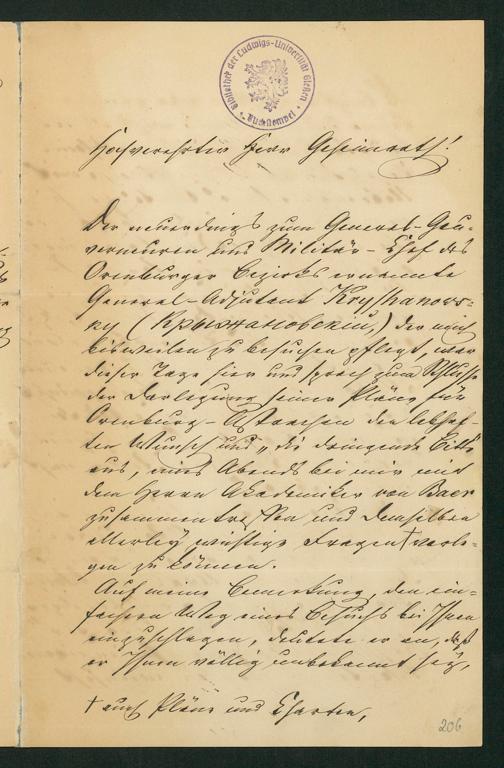 Bibliothek der Ludwigs-Universität Gießen
Buchstempel
Hochverehrter Herr Geheimrath!
Der neuerdings zum General-Gou-
verneuren und Militär-Chef des
Orenburger Bezirks ernannte
General-Adjutant Kryshanows-
ky (Крыжановскій,) der mich
bisweilen zu besuchen pflegt, war
dieser Tage hier und sprach zum Schlusse
der Darlegung seiner Pläne für
Orenburg-Astrachan den lebhaf-
ten Wunsch und „die dringende Bitte
aus, eines Abends bei mir mit
dem Herrn Akademiker von Baer
zusammentreffen und demselben
allerley wichtige Fragen † vorle-
gen zu können.
Auf meine Bemerkung, den ein-
fachern Weg eines Besuchs bei Ihnen
einzuschlagen, deutete er an, daß
er Ihnen völlig unbekannt sey,
† auch Pläne und Charten,
206